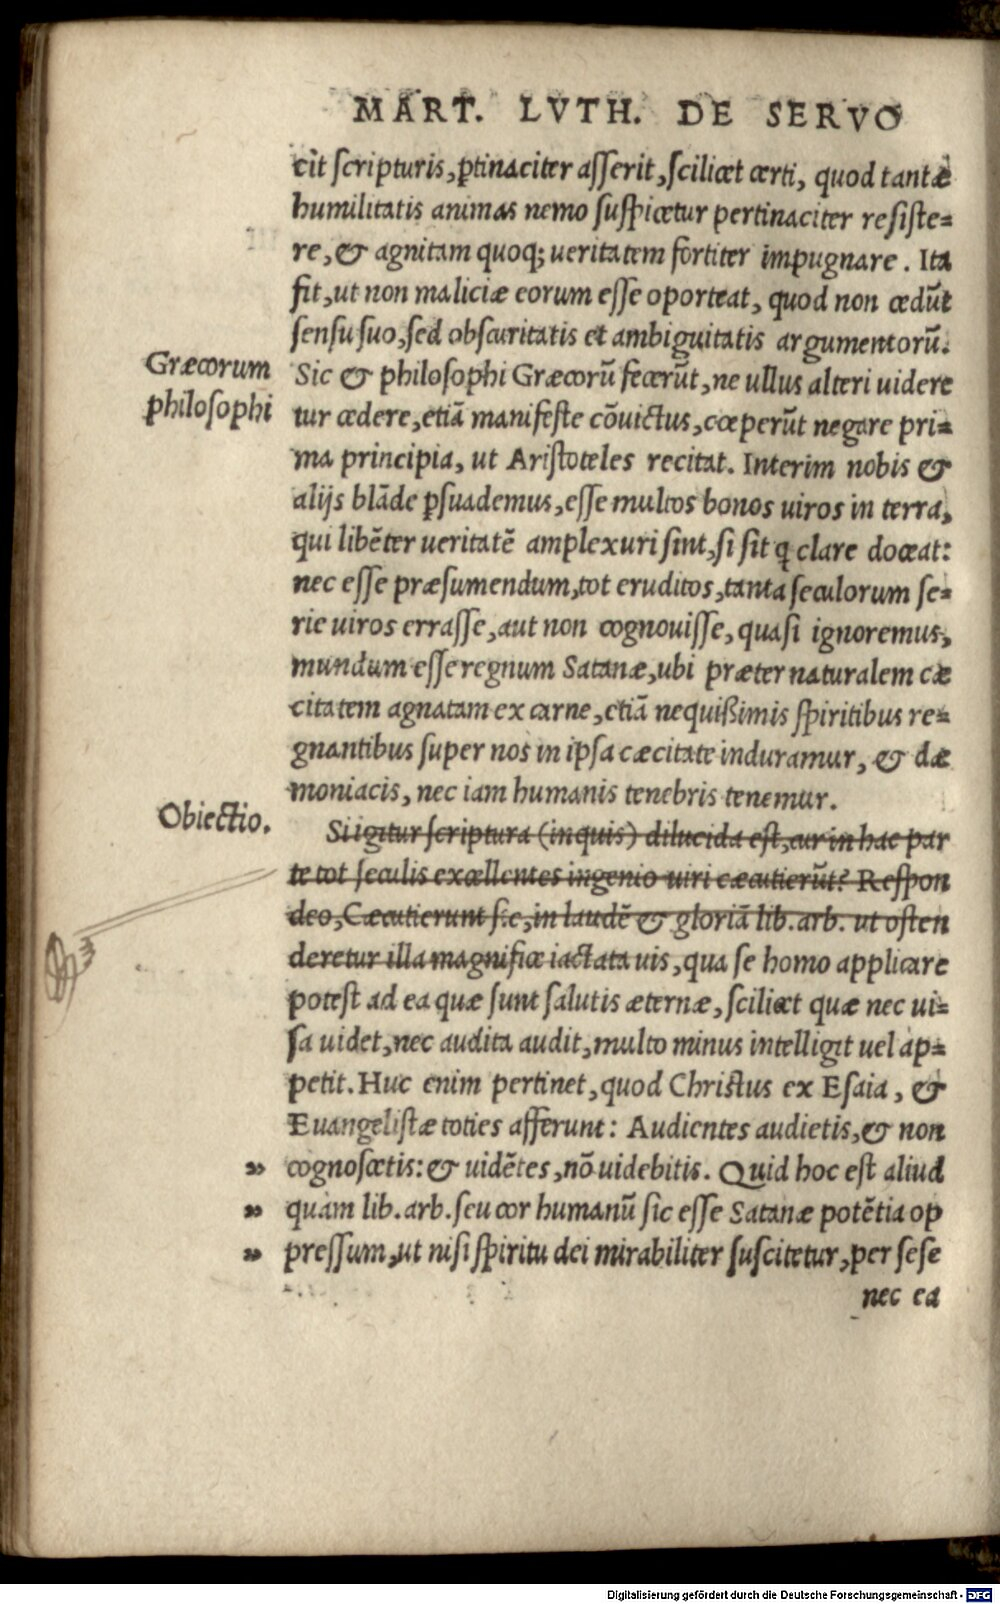 MART. LVTH. DE SERVO
cit scripturis, ꝑtinaciter asserit, scilicet certi, quod tantæ
humilitatis animas nemo suspicetur pertinaciter resiste-
re, & agnitam quoq; ueritatem fortiter impugnare. Ita
fit, ut non maliciæ eorum esse oporteat, quod non cedūt
sensu suo, sed obscuritatis et ambiguitatis argumentorū.
Græcorum
philosophi
Sic & philosophi Græcorū fecerūt, ne ullus alteri uidere
tur cedere, etiā manifeste cōuictus, cœperūt negare pri-
ma principia, ut Aristoteles recitat. Interim nobis &
alijs blāde ꝑsuademus, esse multos bonos uiros in terra,
qui libēter ueritatē amplexuri sint, si sit ꝗ clare doceat:
nec esse præsumendum, tot eruditos, tanta seculorum se-
rie uiros errasse, aut non cognouisse, quasi ignoremus,
mundum esse regnum Satanæ, ubi præter naturalem cæ
citatem agnatam ex carne, etiā nequißimis spiritibus re-
gnantibus super nos in ipsa cæcitate induramur, & dæ
moniacis, nec iam humanis tenebris tenemur.
Obiectio.
Si igitur scriptura (inquis) dilucida est, cur in hac par
te tot seculis excellentes ingenio uiri cæcutierūt? Respon
deo, Cæcutierunt sic, in laudē & gloriā lib. arb. ut osten
deretur illa magnifice iactata uis, qua se homo applicare
potest ad ea quæ sunt salutis æternæ, scilicet quæ nec ui-
sa uidet, nec audita audit, multo minus intelligit uel ap-
petit. Huc enim pertinet, quod Christus ex Esaia, &
Euangelistæ toties afferunt: Audientes audietis, & non
„ cognoscetis: & uidētes, nō uidebitis. Quid hoc est aliud
„ quàm lib. arb. seu cor humanū sic esse Satanæ potētia op
„ pressum, ut nisi spiritu dei mirabiliter suscitetur, per sese
nec ea
Digitalisierung gefördert durch die Deutsche Forschungsgemeinschaft - DFG